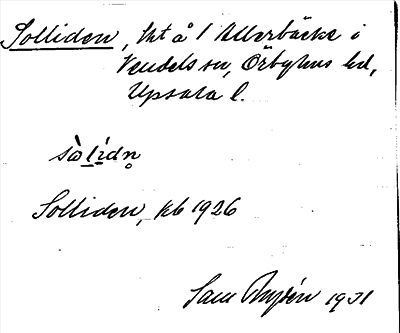 Solliden, lht å 1 Ullerbäcke i
Vendels sn, Örbyhus hd,
Upsala l.
sòlídn̥
Solliden, kb 1926
Sam 1931